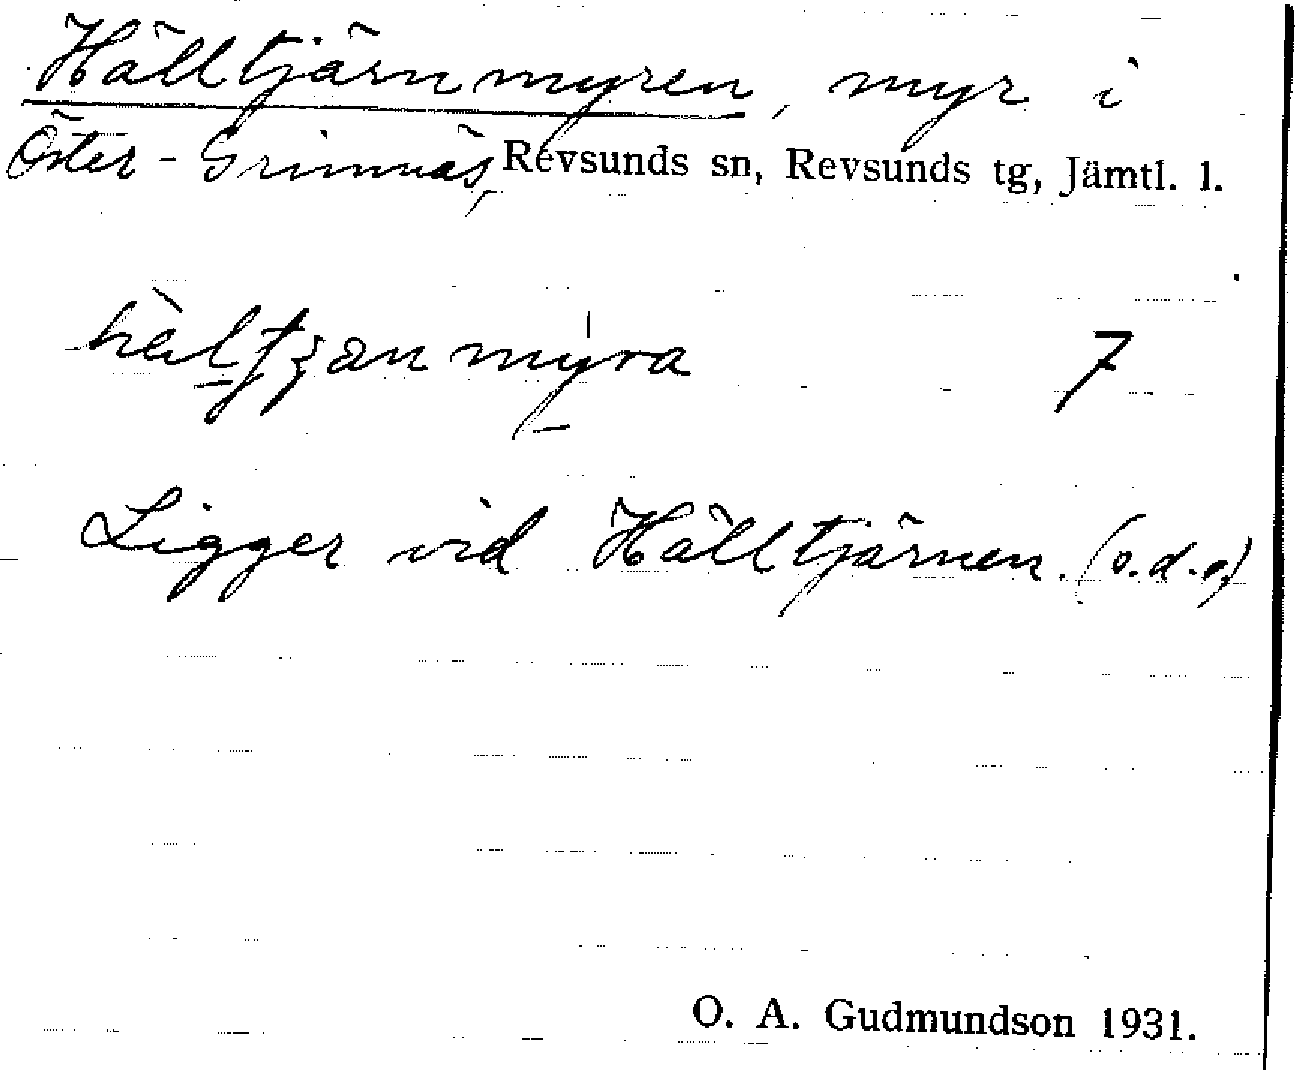 Hälltjärnmyren, myr i
Öster-Grimnäs, Revsunds sn, Revsunds tg, Jämtl. l.
7
Ligger vid Hälltjärnen. (o.d.o)
O. A. Gudmundson 1931.